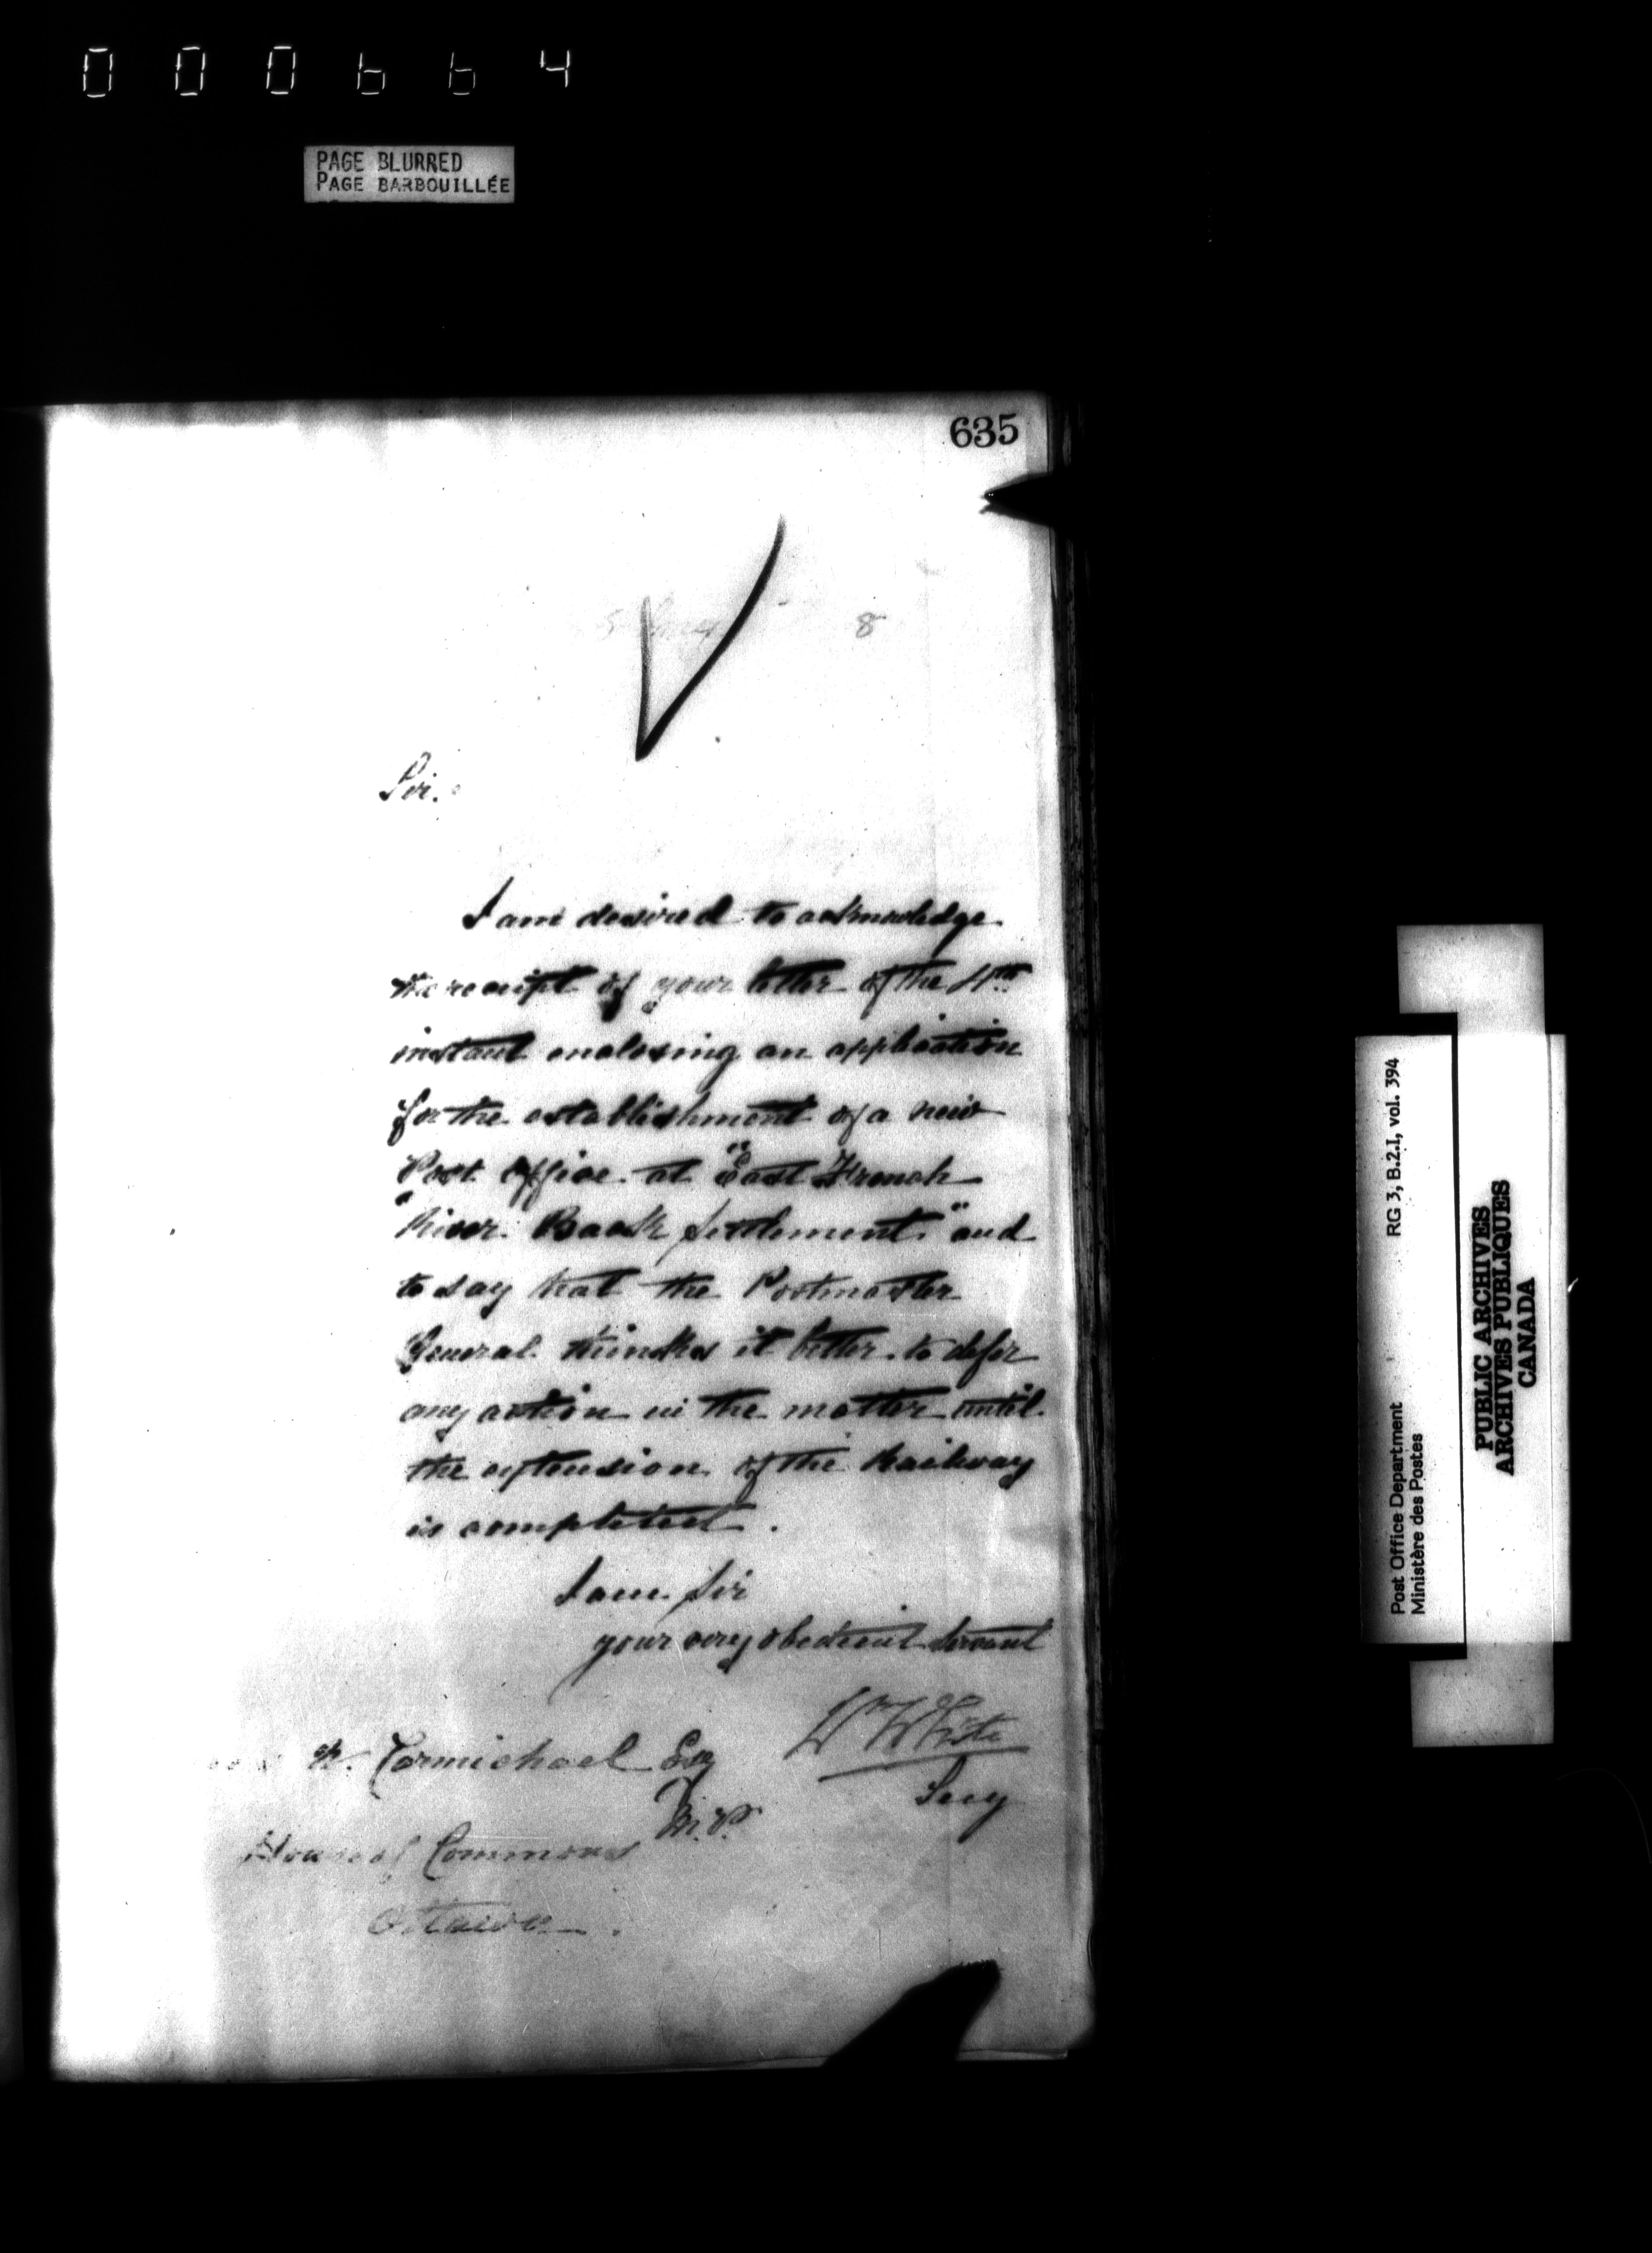 000664
PAGE BLURRED
PAGE BARBOUILLÉE
635
8
Sir.
I am desired to acknowledge
the receipt of your letter of the 4th
instant enclosing an application
for the establishment of a new
Post Office at "East French
"River Back Settlement" and
to say that the Postmaster
General thinks it better to defer
any action in the matter until
the extension of the Railway
is completed.
I am Sir
your very obedient servant
Wm White
Secy
Carmichael Esq
M.P.
House of Commons
Ottawa.
RG 3, B.2.I, vol. 394
Post Office Department
Ministère des Postes
PUBLIC ARCHIVES
ARCHIVES PUBLIQUES
CANADA